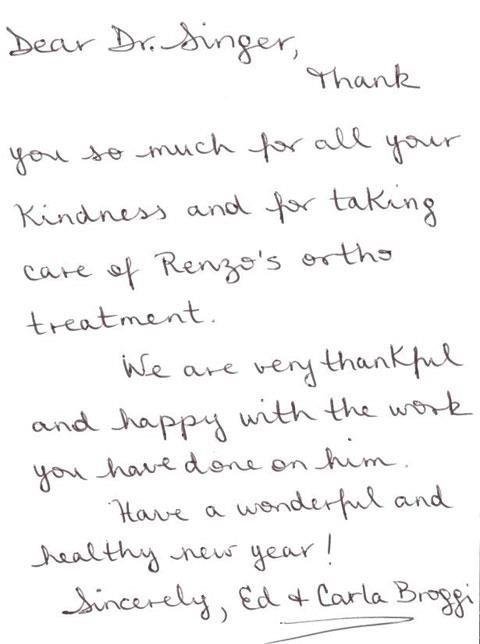 Dear Dr. Singer,
Thank
you so much for all your
Kindness and for taking
care of Renzo's ortho
treatment.
We are very thankful
and happy with the work
you have done on him.
Have a wonderful and
healthy new year!
Sincerely, Ed & Carla Broggi